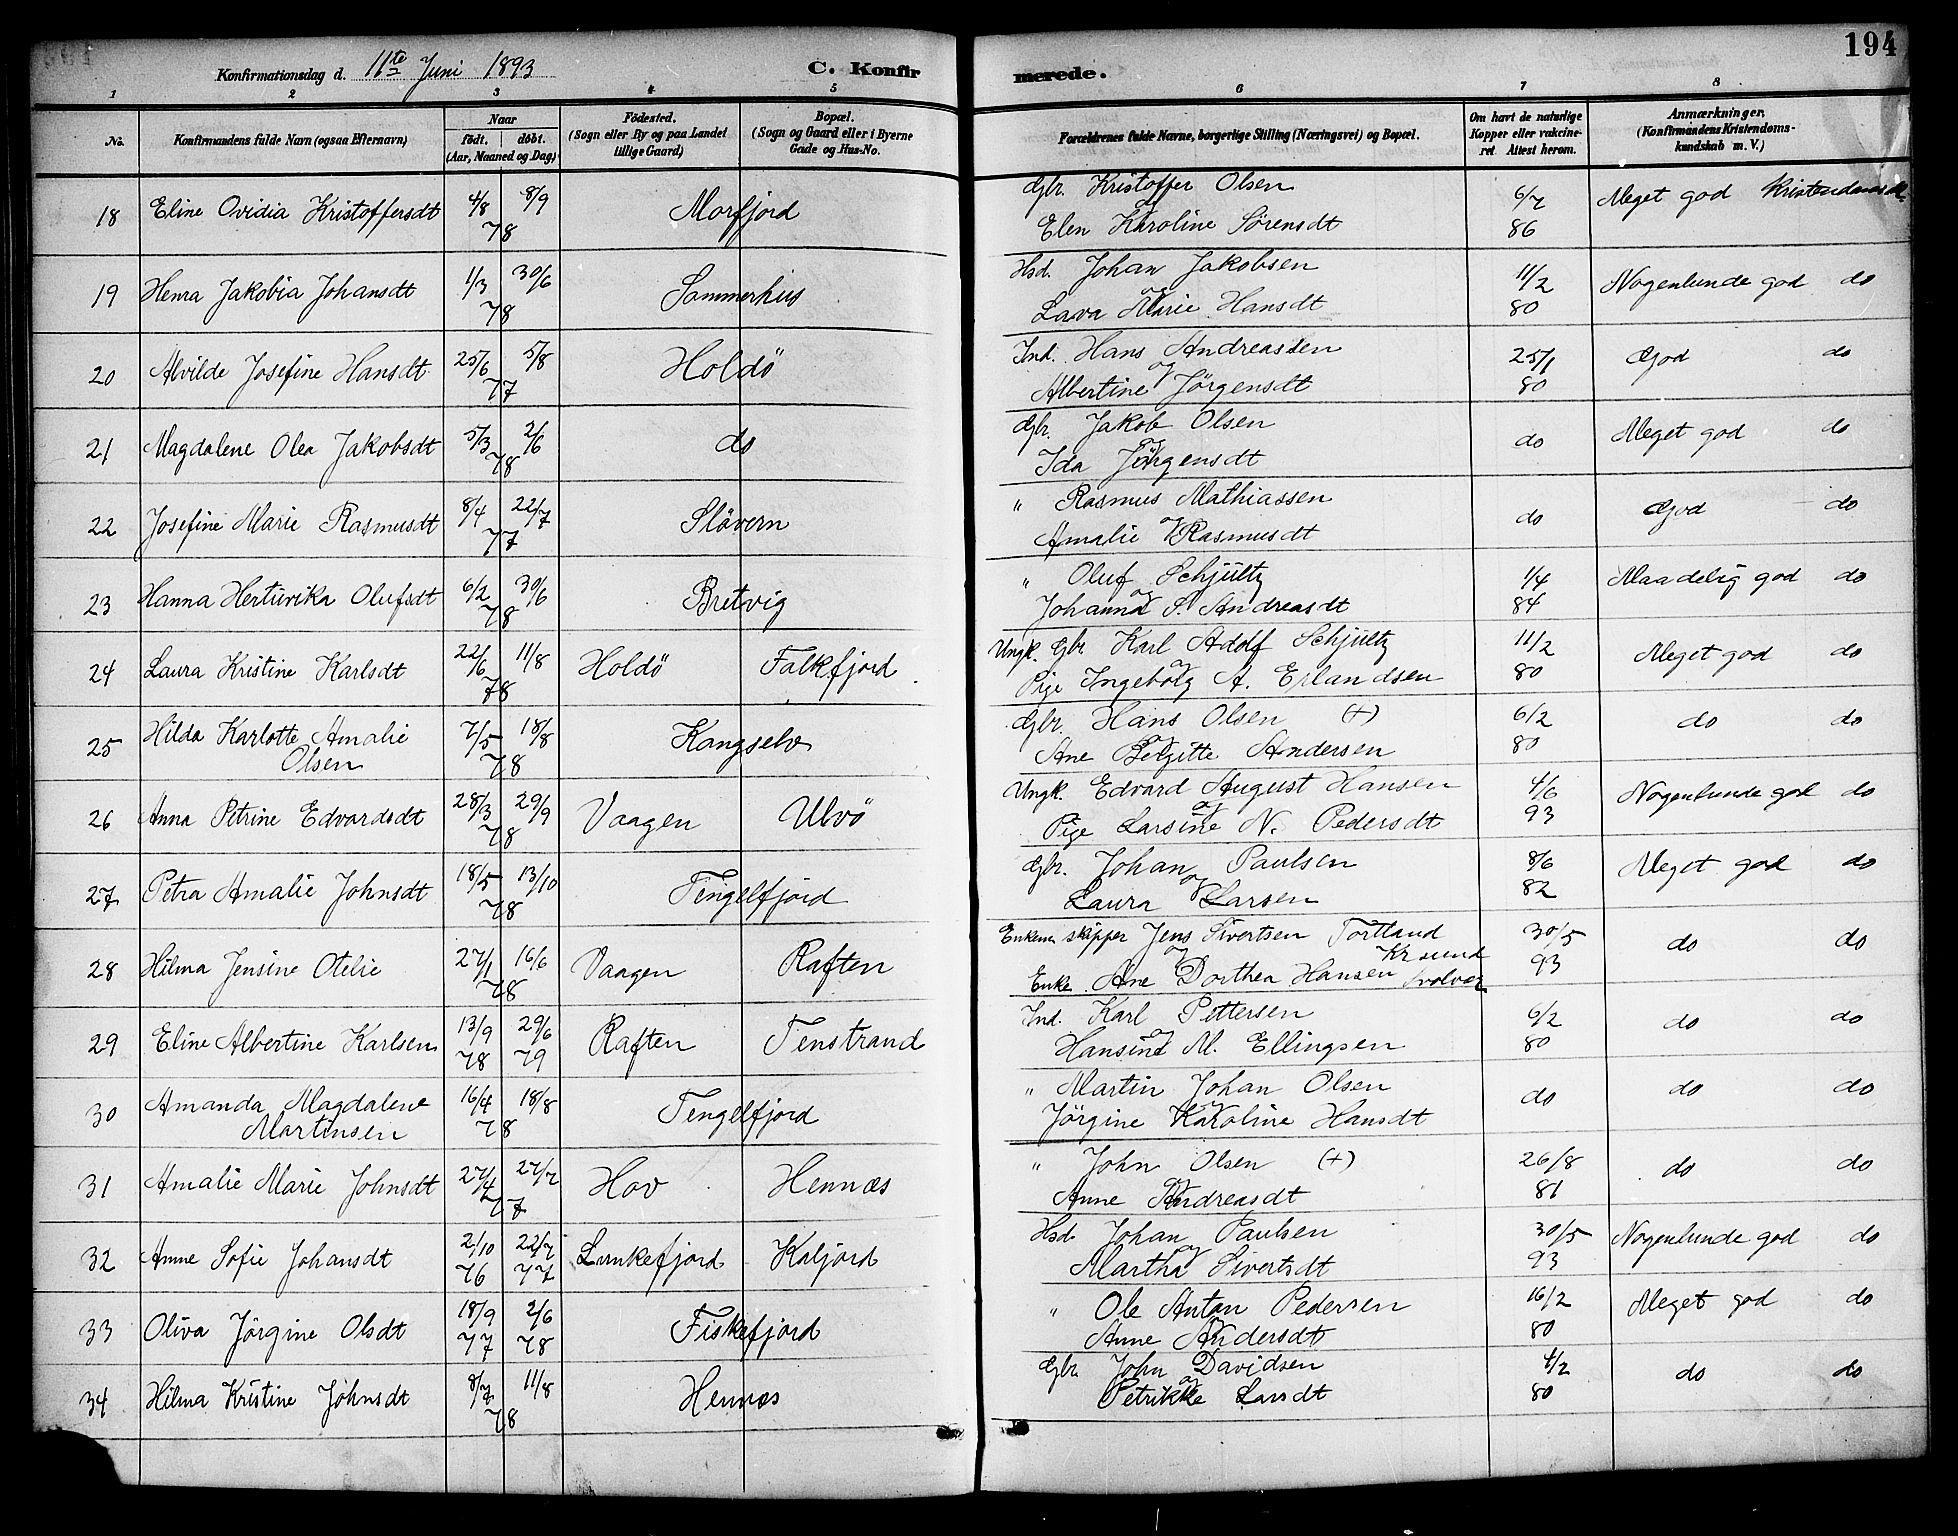 194
Konfirmationsdag d. 11te Juni 1893 C. Konfirmerede.
1 2 3 4 5 6 7 8
No. Konfirmandens fulde Navn (ogsaa Efternavn) Naar født. døbt. (Aar, Maaned og Dag) Fødested. (Sogn eller By og paa Landet tillige Gaard) Bopæl. (Sogn og Gaard eller i Byerne Gade og Hus-No. Forældrenes fulde Navne, borgerlige Stilling (Næringsvei) og Bopæl. Om havt de naturlige Kopper eller vakcineret Attest herom. Anmærkninger. (Konfirmandens Kristendomskundskab m. V.)
18 Eline Ovidia Kristoffersdt 4/8 8/9 78 Morfjord Gbr. Kristoffer Olsen og Elen Karoline Sørensdt 6/7 86 Meget god Kristendomsk.
19 Henra Jakobia Johansdt 1/3 30/6 78 Sommerhus Hsd. Johan Jakobsen og Lava Marie Hansdt 11/2 80 Nogenlunde god do
20 Alvilde Josefine Hansdt 25/6 5/8 77 Holdö Ind. Hans Andreassen og Albertine Jörgensdt 25/1 80 God do
21 Magdalene Olea Jakobsdt 5/3 2/6 78 do Gbr. Jakob Olsen og Ida Jörgensdt do Meget god do
22 Josefine Marie Rasmusdt 8/4 22/7 77 Slövern " Rasmus Mathiassen og Amalie Rasmusdt do God do
23 Hanna Herturika Olufsdt 6/2 30/6 78 Bretvig " Oluf Schjültz og Johanna S. Andreasdt 1/4 84 Maadelig god do
24 Laura Kristine Karlsdt 22/6 11/8 78 Holdö Falkfjord Ungk. Gbr Karl Adolf Schjültz og Pige Ingeborg A. Erlandsen 11/2 80 Meget god do
25 Hilda Karlotte Amalie Olsen 7/5 18/8 78 Kongselv Gbr. Hans Olsen (+) og Ane Bergitte Andersen 6/2 80 do do
26 Anna Petrine Edvardsdt 28/3 29/9 78 Vaagen Ulvö Ungk. Edvard August Hansen og Pige Larsine N. Pedersdt 4/6 93 Nogenlunde god do
27 Petra Amalie Johnsdt 18/5 13/10 78 Tengelfjord Gbr. Johan Paulsen og Laura Larsen 8/6 82 Meget god do
28 Hilma Jensine Otelie 27/1 16/6 78 Vaagen Raften Enkem skipper Jens Sivertsen Tortland Kr sund og Enke Ane Dorthea Hansen Svolvær 30/5 93 do do
29 Eline Albertine Karlsen 13/9 78 29/6 79 Raften Tenstrand Ind. Karl Pettersen og Hansine M. Ellingsen 6/2 80 do do
30 Amanda Magdalene Martinsen 16/4 18/8 78 Tengelfjord " Martin Johan Olsen og Jörgine Karoline Hansdt do do do
31 Amalie Marie Johnsdt 27/4 27/7 77 Hov Hennæs " John Olsen (+) og Anne Andreasdt 26/8 81 do do
32 Anne Sofie Johansdt 2/10 76 22/7 77 Lunkefjord Kaljord Hsd. Johan Paulsen og Martha Sivertsdt 30/5 93 Nogenlunde god do
33 Oliva Jörgine Olsdt 18/9 77 2/6 78 Fiskefjord " Ole Anton Pedersen og Anne Andersdt 16/2 80 Meget god do
34 Hilma Kristine Johnsdt 8/7 11/8 78 Hennæs Gbr John Davidsen og Petrikke Larsdt 4/2 80 do do